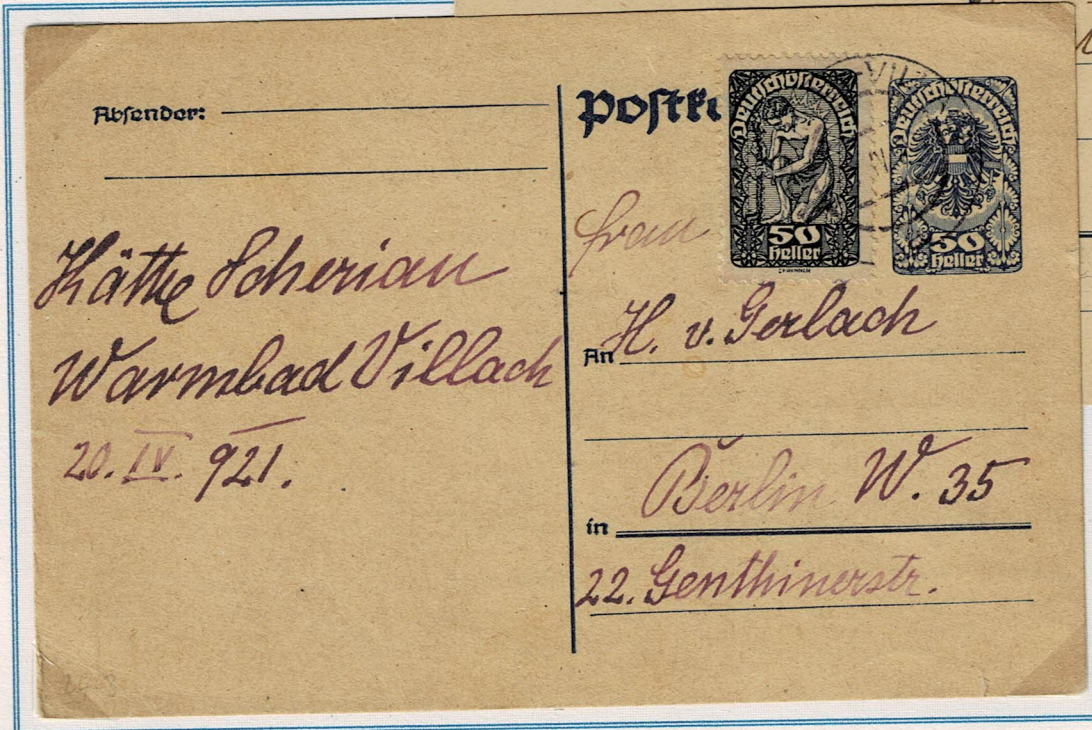 Absender:
Käthe Scherian
Warmbad Villach
20. IV. 921.
Deutschösterreich
50
Heller
Deutschösterreich
50
Heller
Frau
An H. v. Gerlach
in Berlin W. 35
22. Genthinerstr.